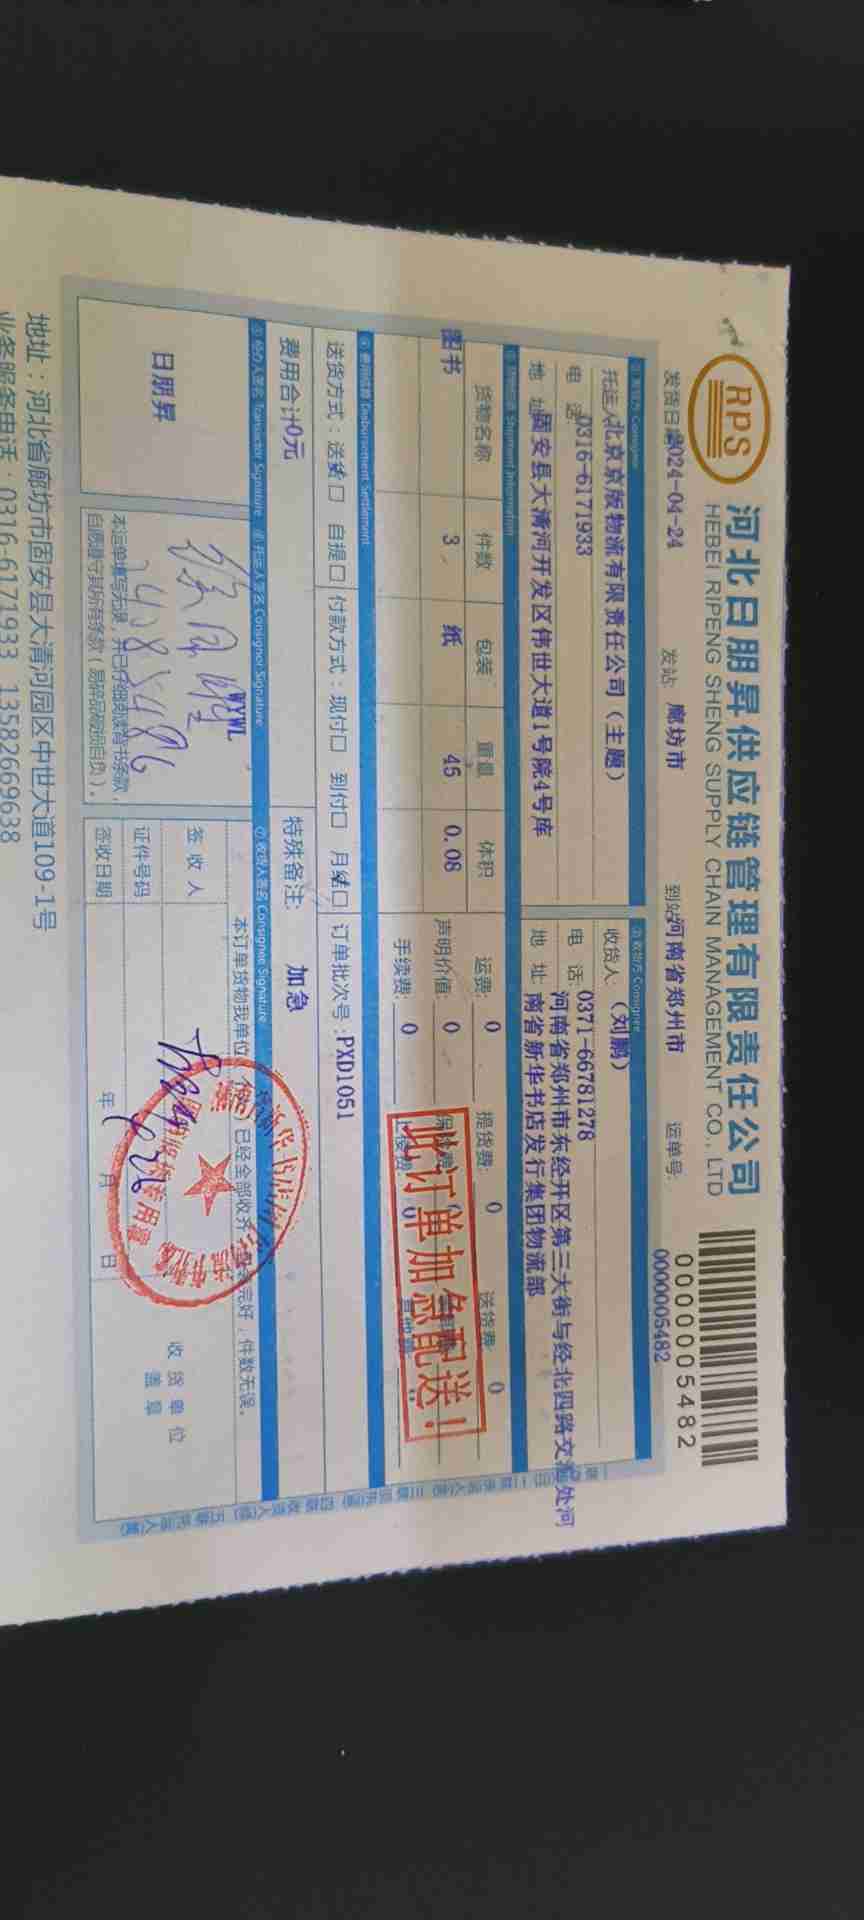 RPS
河北日朋昇供应链管理有限责任公司
HEBEI RIPENG SHENG SUPPLY CHAIN MANAGEMENT CO., LTD
0000005482
发货日期 2024-04-24 发站: 廊坊市 到站: 河南省郑州市 运单号: 0000005482
发货方 Consigner
托运人 北京京版物流有限责任公司（主题）
电 话 0316-6171933
地 址 固安县大清河开发区伟世大道1号院4号库
收货方 Consignee
收货人: （刘鹏）
电 话: 0371-66781278
地 址: 河南省郑州市东经开区第三大街与经北四路交 处河
南省新华书店发行集团物流部
Shipment Information
货物名称 件数 包装 重量 体积
图书 3 纸 45 0.08
运费: 0 提货费: 0 送货费: 0
声明价值: 0
手续费: 0 上楼费: 0
此订单加急配送！
费用结算 Disbursement Settlement
送货方式: 送货口 自提口 付款方式: 现付口 到付口 月结口 订单批次号: PXD1051
费用合计0元 特殊备注: 加急
经办人签名 Transactor Signature
托运人签名 Consignor Signature
收货人签名 Consignee Signature
日朋昇
WYWL
本运单填写无误，并已仔细阅读背书条款，
自愿遵守其所有条款（易碎品破损自负）。
本订单货物我单位 已经全部收齐 完好，件数无误。
签 收 人
证件号码
签收日期 年 月 日
收货单位
盖章
地址：河北省廊坊市固安县大清河园区中世大道109-1号
业务服务电话：0316-6171933 13582669638